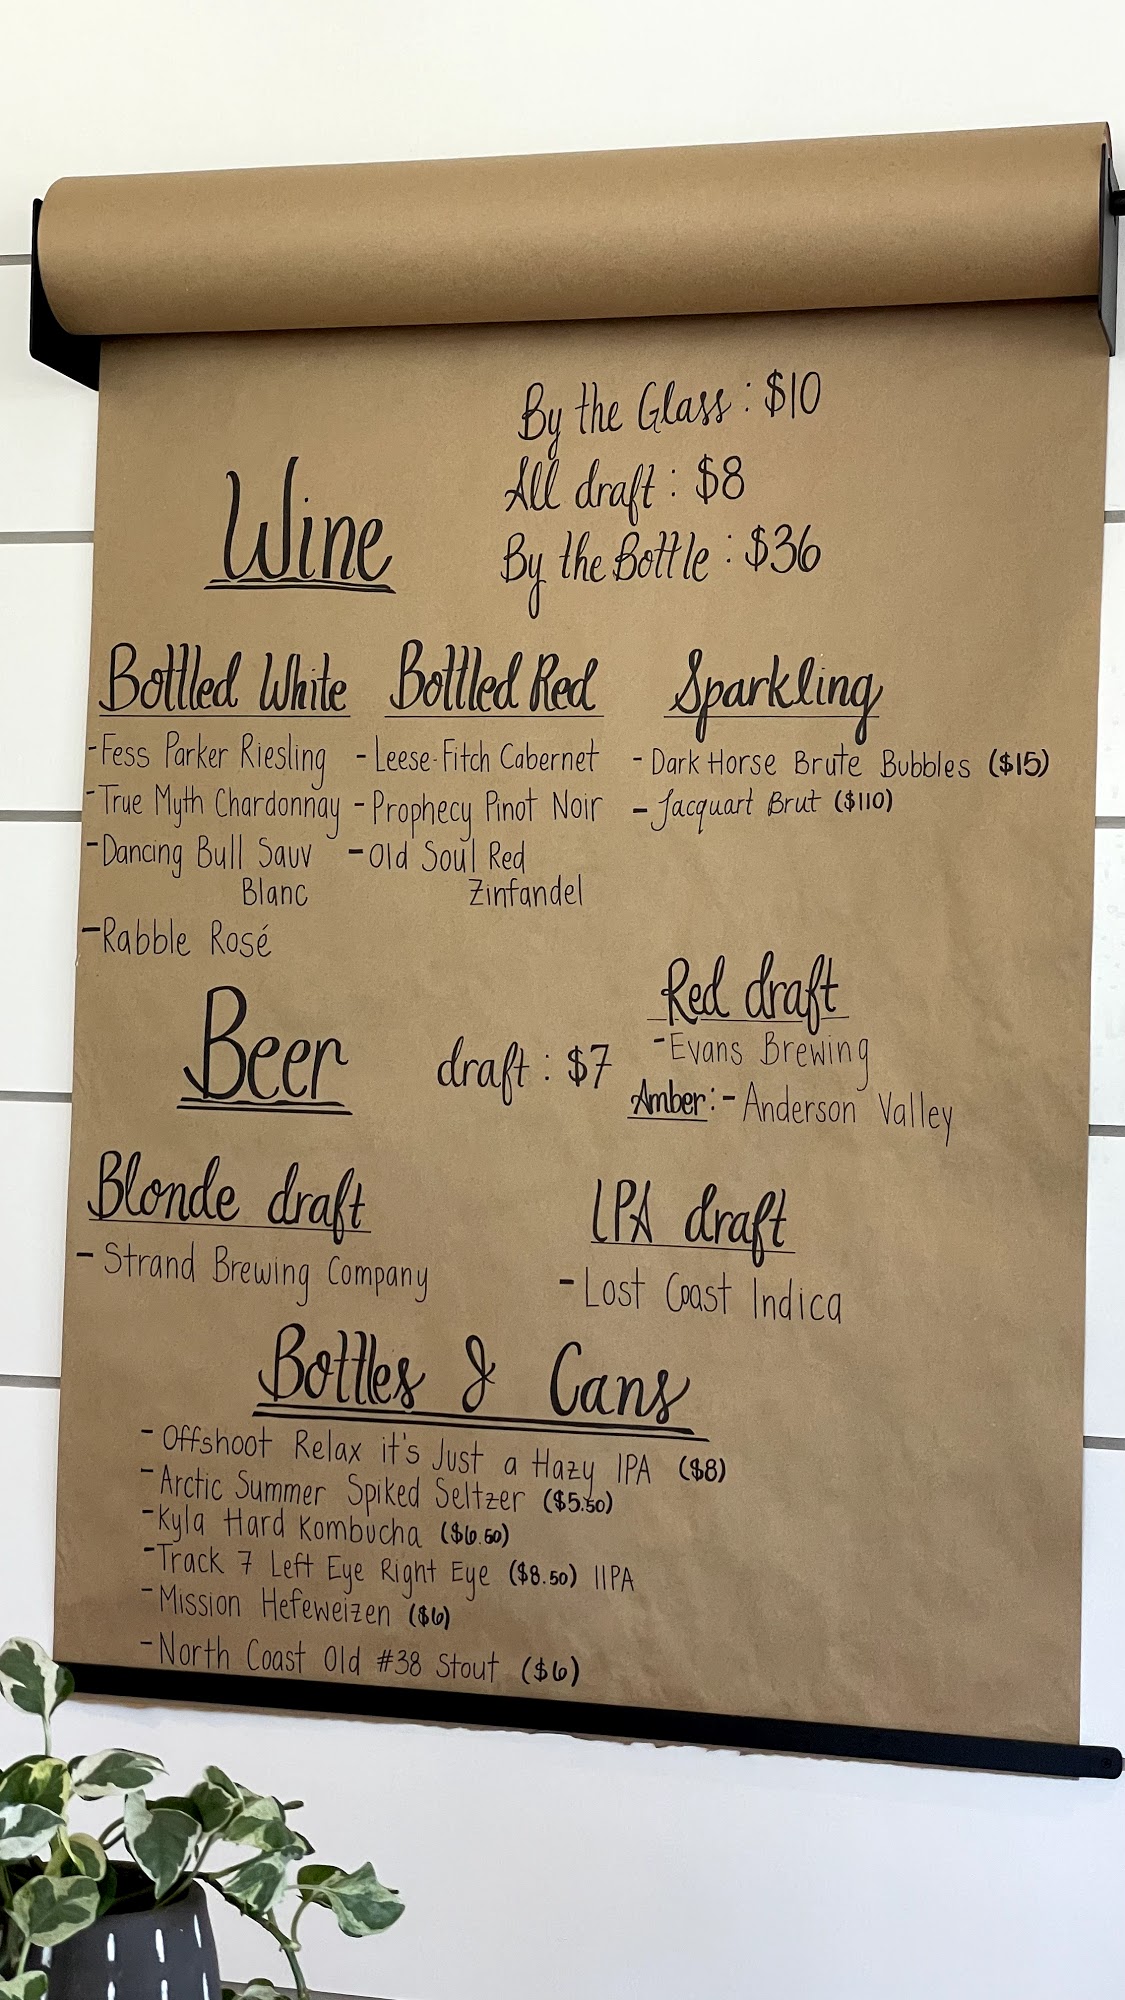 By the Glass: $10
All draft: $8
Wine
By the Bottle: $36
Bottled White
- Fess Parker Riesling
- True Myth Chardonnay
- Dancing Bull Sauv
Blanc
- Rabble Rosé
Bottled Red
- Leese-Fitch Cabernet
- Prophecy Pinot Noir
- Old Soul Red
Zinfandel
Sparkling
- Dark Horse Brute Bubbles ($15)
- Jacquart Brut ($110)
Beer
draft: $7
Red draft
- Evans Brewing
Amber: - Anderson Valley
Blonde draft
- Strand Brewing Company
IPA draft
- Lost Coast Indica
Bottles & Cans
- Offshoot Relax it's Just a Hazy IPA ($8)
- Arctic Summer Spiked Seltzer ($5.50)
- Kyla Hard Kombucha ($6.50)
- Track 7 Left Eye Right Eye ($8.50) IIPA
- Mission Hefeweizen ($6)
- North Coast Old #38 Stout ($6)